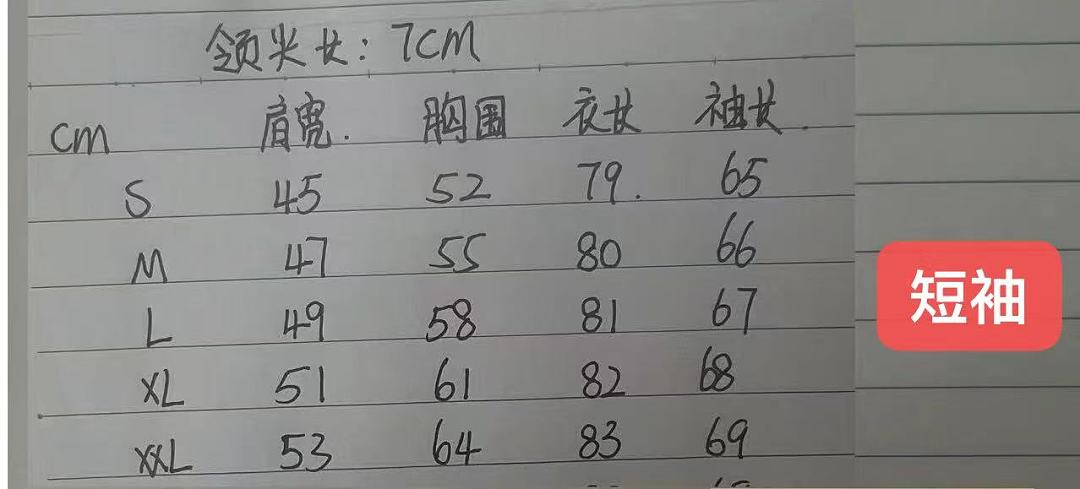 领尖长: 7CM
cm 肩宽. 胸围 衣长 袖长.
S 45 52 79. 65
M 47 55 80 66
L 49 58 81 67
XL 51 61 82 68
XXL 53 64 83 69
短袖